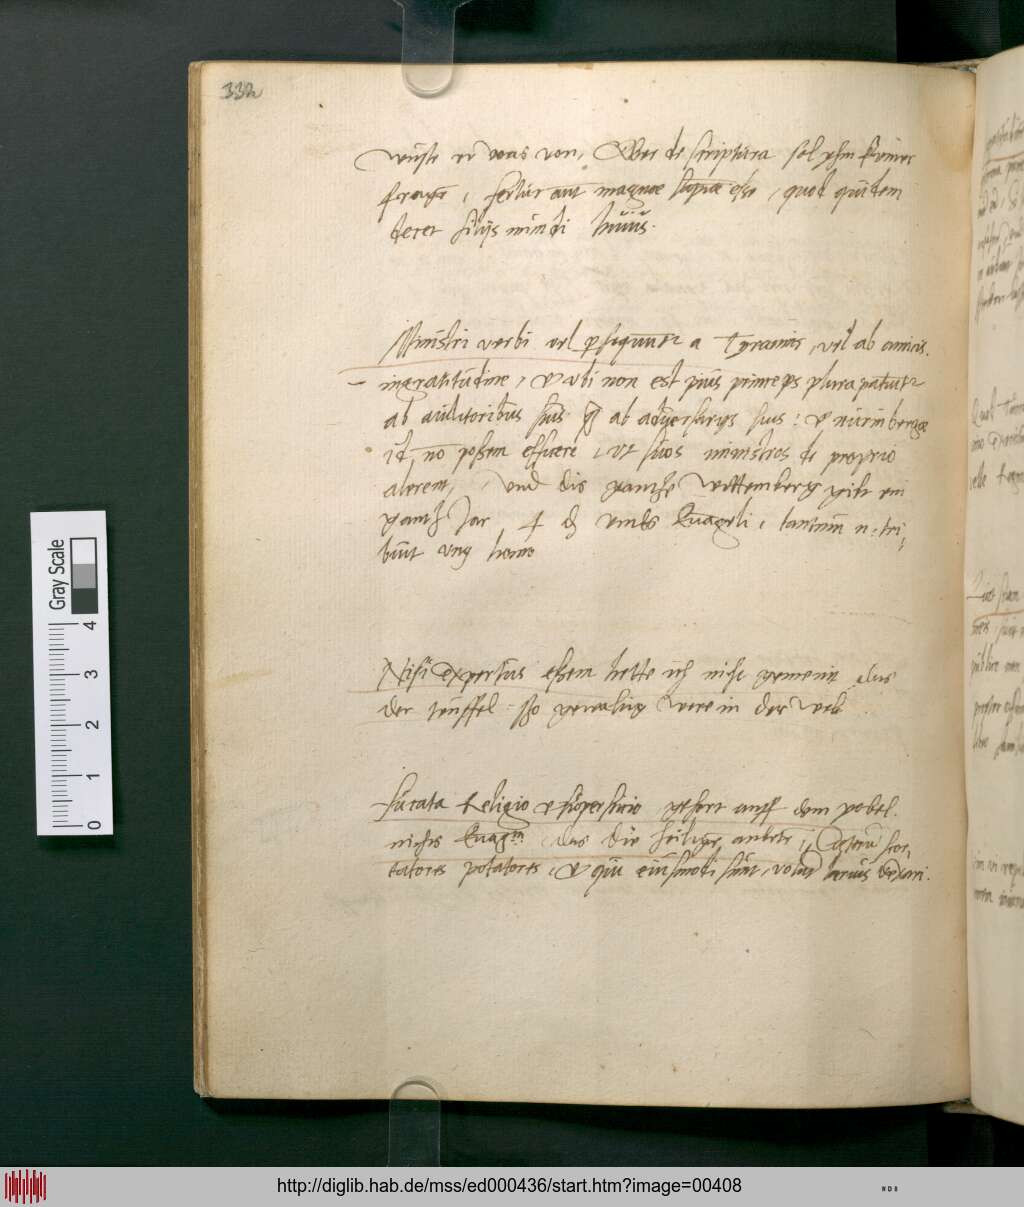 332
wuste er was von, Aber de scriptura sol yhn keiner
fragen, fertur aut magnae sapiae esse, quod quidem
decet filijs mundi huius.
Ministri verbi vel psequuntr a Tyrannis, vel ab amicis.
ingratitudine, et ubi non est pius princeps plura patiuntr
ab auditoribus suis qz ab adversarijs suis: et nurinbergae
id no possem efficere, ut suos ministros de proprio
alerent, und die gantze Wittemberg gibt ein
gantz Jar, 4 d umbs Euageli, tantum n: tri:
buit unq homo
Nisi expertus essem hette ich nicht gemeint das
der teuffel so gewaltig were in der welt
fucata Religio et superstitio gehort auff den pobel.
nichts Euagm, das die heilige anbete
tatores potatores, et qui eiusmodi sunt, volut
Gray Scale
4
3
2
1
0
http://diglib.hab.de/mss/ed000436/start.htm?image=00408